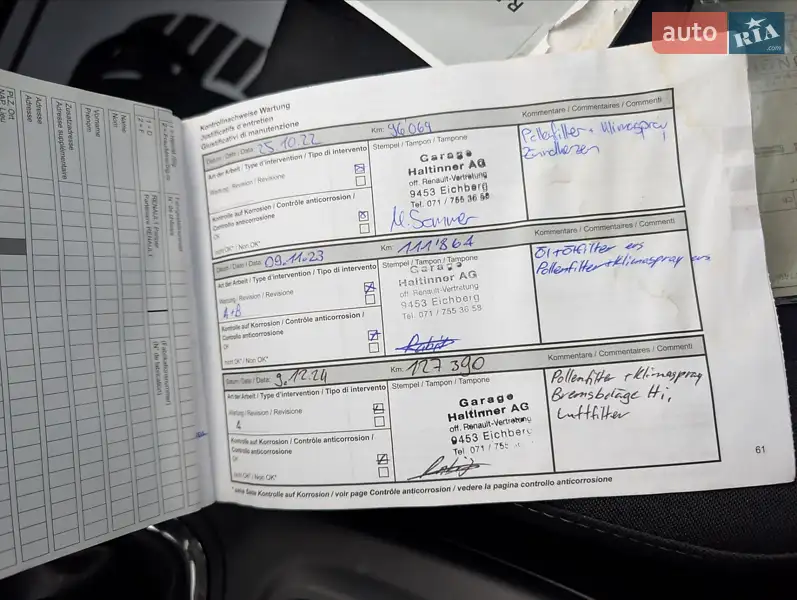 auto RIA.com
Kontrollnachweise Wartung
Justificatifs d'entretien
Giustificativi di manutenzione
Datum / Date / Data: 25.10.22
Km: 96069
Kommentare / Commentaires / Commenti
Art der Arbeit / Type d'intervention / Tipo di intervento
Wartung / Revision / Revisione
Kontrolle auf Korrosion / Contrôle anticorrosion /
Controllo anticorrosione
OK
nicht OK* / Non OK*
Stempel / Tampon / Tampone
Garage
Haltinner AG
off. Renault-Vertretung
9453 Eichberg
Tel. 071 / 755 36 58
Pollenfilter + Klimaspray
Zündkerzen
Datum / Date / Data: 09.11.23
Km: 111'864
Kommentare / Commentaires / Commenti
Art der Arbeit / Type d'intervention / Tipo di intervento
Wartung / Revision / Revisione
A+B
Kontrolle auf Korrosion / Contrôle anticorrosion /
Controllo anticorrosione
OK
nicht OK* / Non OK*
Stempel / Tampon / Tampone
Garage
Haltinner AG
off. Renault-Vertretung
9453 Eichberg
Tel. 071 / 755 36 58
Öl + Ölfilter ers
Pollenfilter + Klimaspray ers
Datum / Date / Data: 9.12.24
Km: 127390
Kommentare / Commentaires / Commenti
Art der Arbeit / Type d'intervention / Tipo di intervento
Wartung / Revision / Revisione
A
Kontrolle auf Korrosion / Contrôle anticorrosion /
Controllo anticorrosione
OK
nicht OK* / Non OK*
Stempel / Tampon / Tampone
Garage
Haltinner AG
off. Renault-Vertretung
9453 Eichberg
Tel. 071 / 755
Pollenfilter + Klimaspray
Bremsbeläge Hi,
Luftfilter
* siehe Seite Kontrolle auf Korrosion / voir page Contrôle anticorrosion / vedere la pagina controllo anticorrosione
61
PLZ, Ort
NAP, Lieu
Adresse
Adresse
Zusatzadresse
Adresse supplémentaire
Vorname
Prénom
Name
Nom
1 = D
2 = F
RENAULT Partner
Partenaire RENAULT
Fahrgestellnummer
N° de châssis
(N° de fabrication)